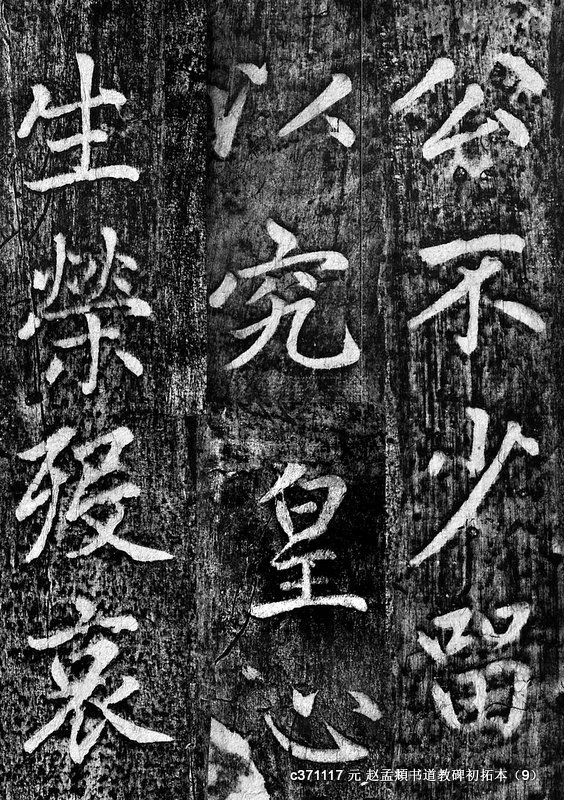 公不少留
以究皇心
生榮歿哀
c371117 元 赵孟頫书道教碑初拓本（9）